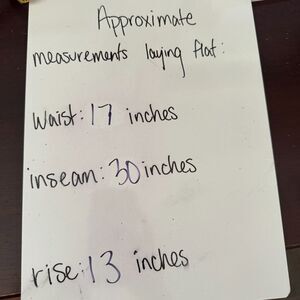 Approximate
measurements laying flat:
waist: 17 inches
inseam: 30 inches
rise: 13 inches